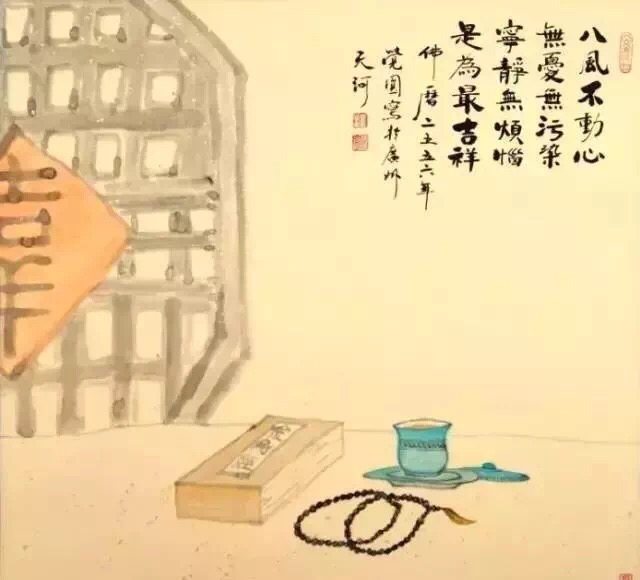 八風不動心
無憂無污染
寧靜無煩惱
是為最吉祥
佛曆二五五六年
覺圓寫於廣州
天河